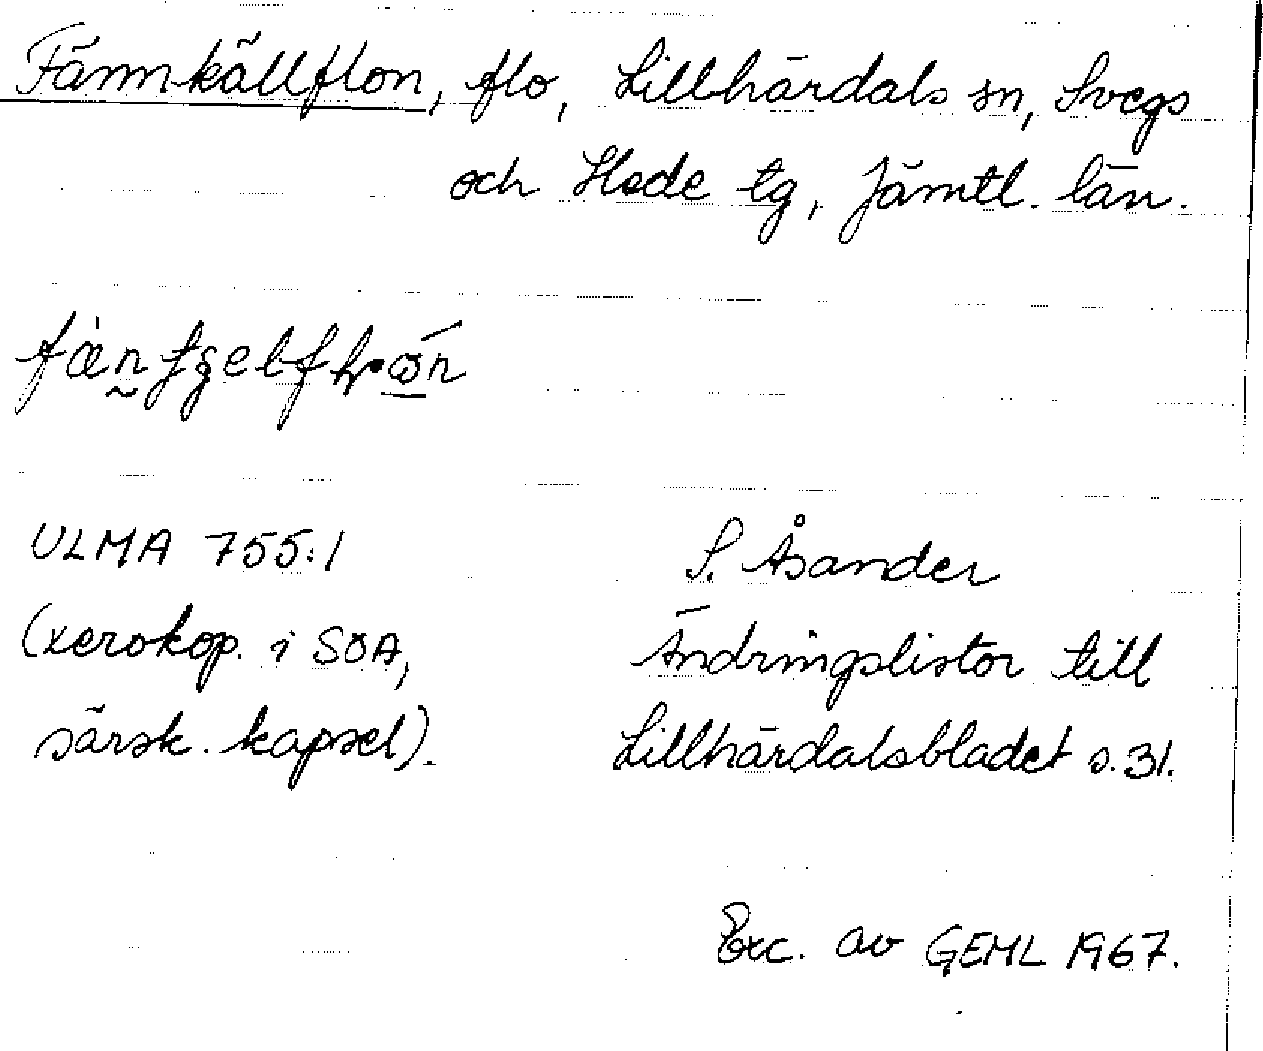 Fännkällflon, flo, Lillhärdals sn, Svegs
och Hede tg, Jämtl. län.
ULMA 755:1
S. Åsander
(xerokop. i SOA,
Ändringslistor till
särsk. kapsel).
Lillhärdalsbladet s. 31.
Exc. av GEML 1967.